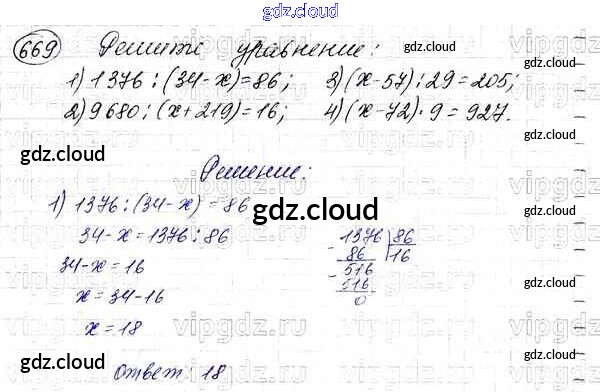 gdz.cloud
669 Решите уравнение: gdz.cloud
1) 1376 : (34 - x) = 86; 3) (x - 57) : 29 = 205;
2) 9680 : (x + 219) = 16; 4) (x - 72) · 9 = 927.
gdz.cloud gdz.cloud
Решение:
gdz.cloud gdz.cloud
1) 1376 : (34 - x) = 86
gdz.cloud
34 - x = 1376 : 86
34 - x = 16
x = 34 - 16
x = 18
1376 | 86
- 86 | 16
- 516
516
0
gdz.cloud gdz.cloud
gdz.cloud gdz.cloud
Ответ: 18
gdz.cloud
vipgdz.ru